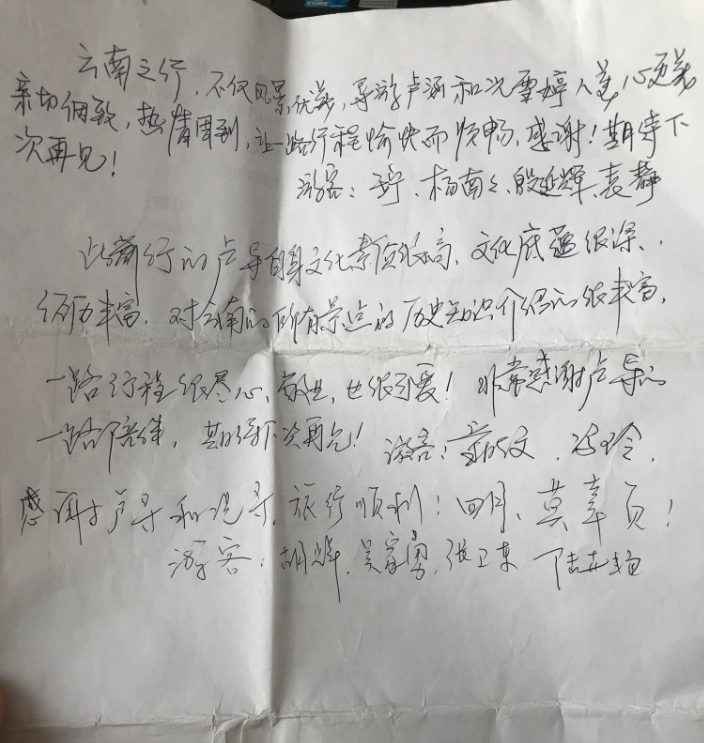 云南之行,不仅风景优美,导游卢涵和沈雯婷人美,心更美
亲切细致,热情周到,让一路行程愉快而顺畅,感谢!期待下
次再见!
游客: 杨南 殷延辉、袁静
此行的卢导自身文化素质很高、文化底蕴很深、
经历丰富,对云南的所有景点的历史知识介绍的很丰富,
一路行程很尽心、敬业,也很可爱!非常感谢卢导的
一路陪伴,期待下次再见!游客: 冯玲.
感谢卢导和沈导,旅行顺利!四月、莫辜负!
游客:胡辉、吴家勇、张卫东